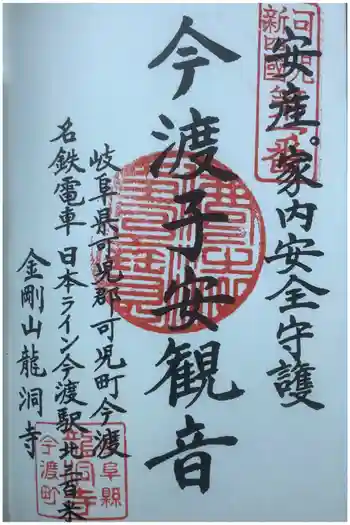 安産。家内安全守護
今渡子安観音
岐阜県可児郡可児町今渡
名鉄電車 日本ライン今渡駅北三百米
金剛山龍洞寺
可児
新四國
龍洞寺
阜縣
今渡町